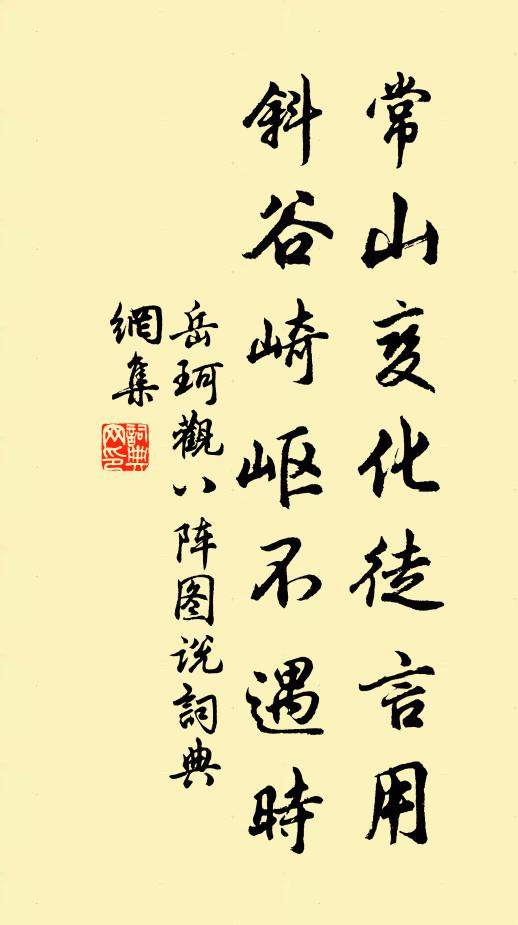 常山变化徒言用
斜谷崎岖不遇時
岳珂觀八阵图说詞典
網集
詞典
网印